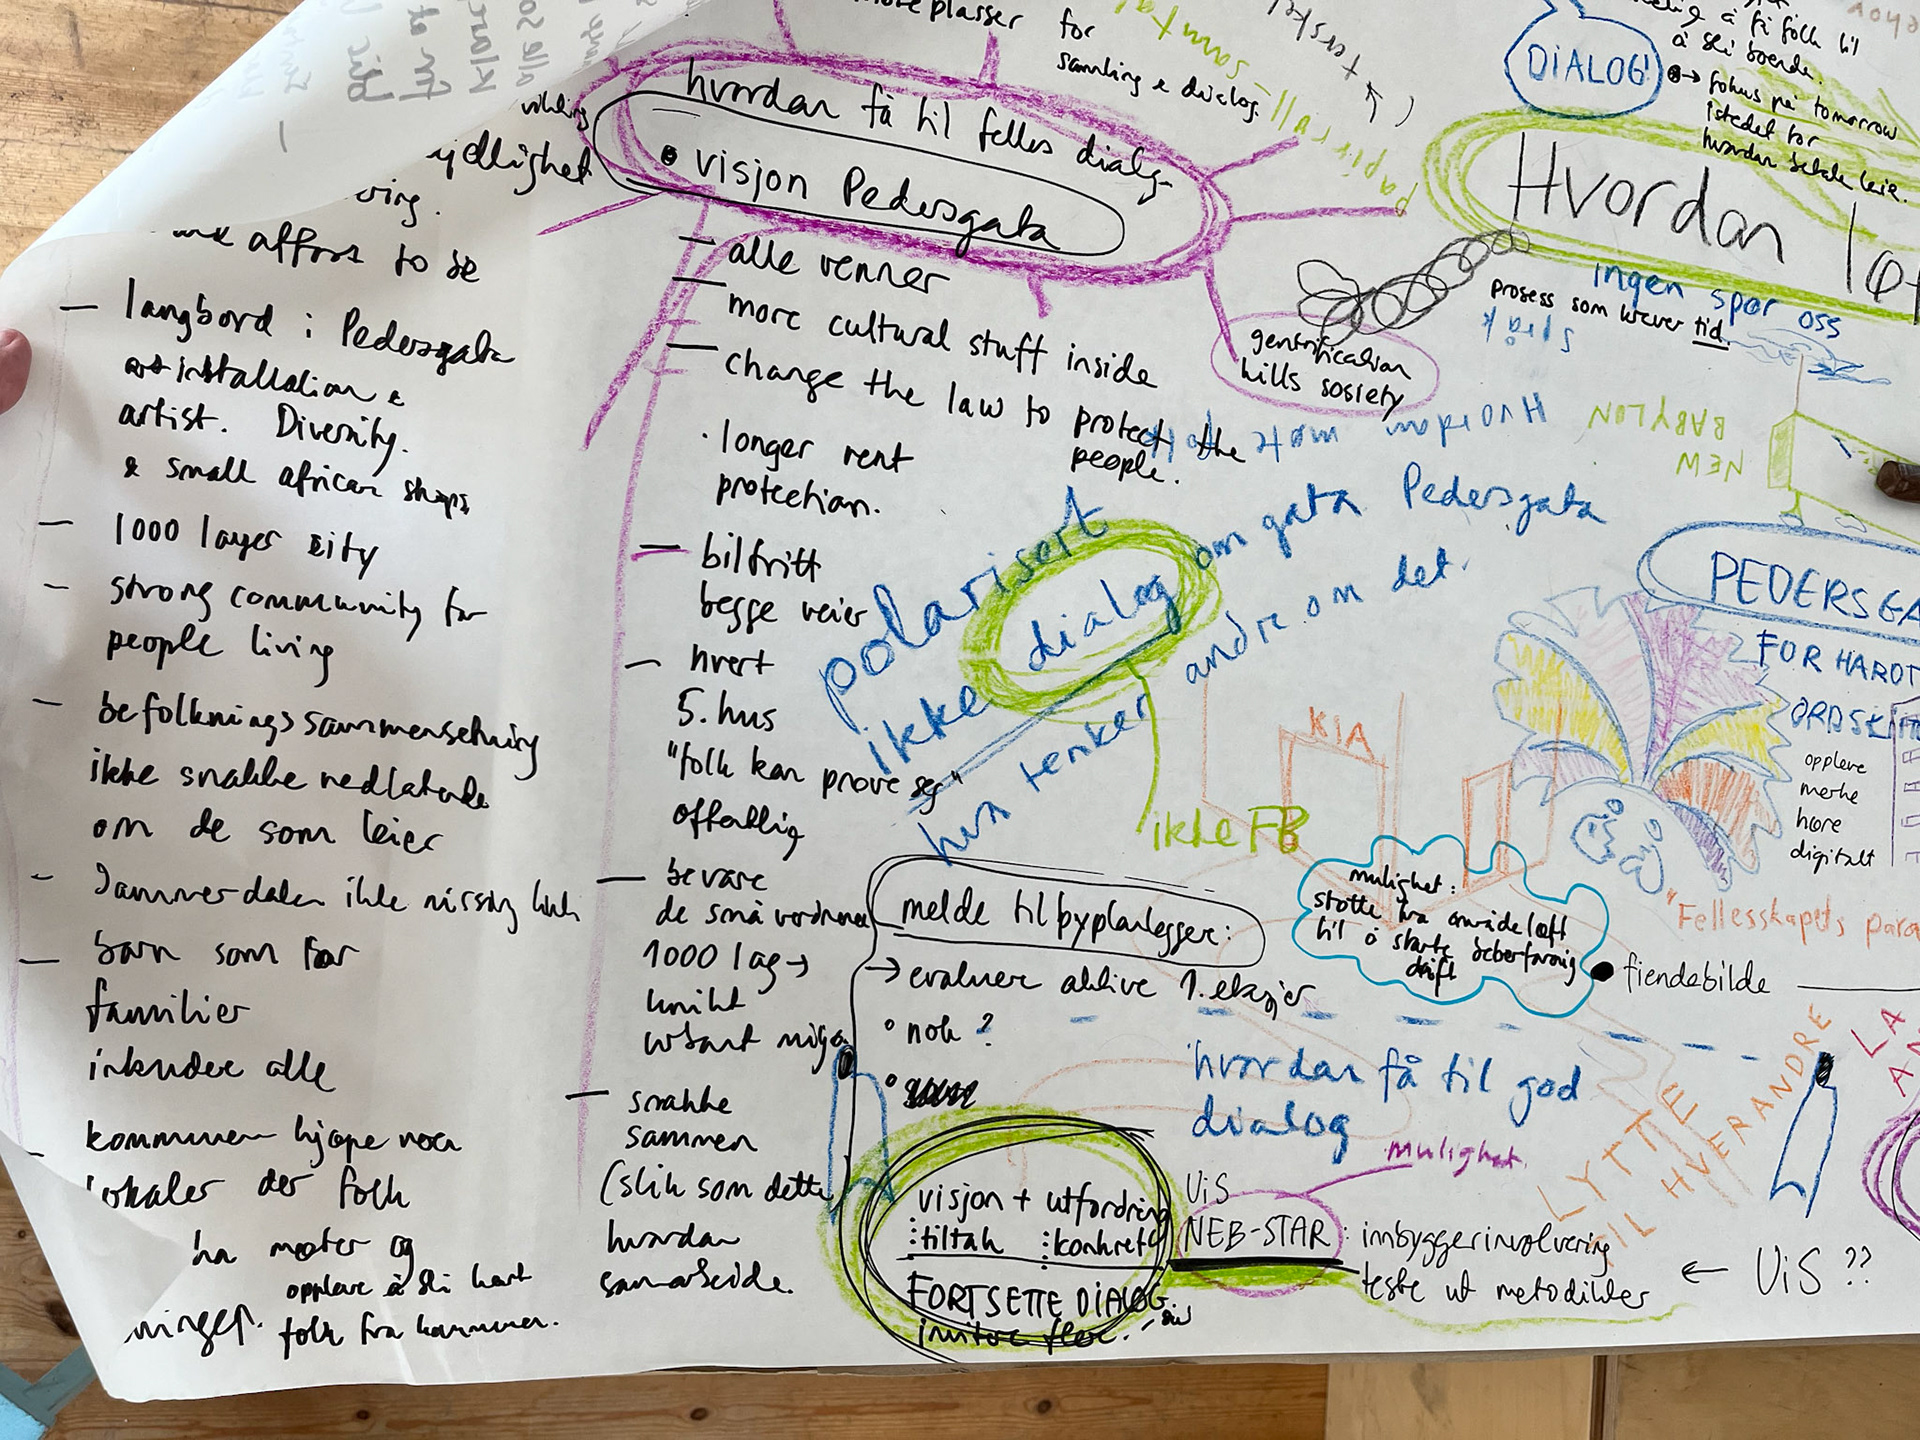 plasser for
samling & dialog.
hvordan få til felles dialog
visjon Pedersgata
DIALOG!
å få folk til
å bli boende.
fokus på tomorrow
istedet for
hvordan betale leie.
Hvordan
ingen spør oss
prosess som krever tid
språk
gentrification
kills sosiety
Hvordan møte folk
NEW
BABYLON
papirall - samtal
afford to be
– langbord i Pedersgata
installation &
artist. Diversity.
& small african shops
– 1000 layer city
– strong community for
people living
– befolkningssammensetning
ikke snakke nedlatende
om de som leier
– Jammerdalen ikke
– barn som bor
familier
inkludere alle
kommunen hjelpe noen
lokaler der folk
kan møter og
oppleve å bli hørt
folk fra kommunen.
– alle venner
– more cultural stuff inside
– change the law to protect the
people.
· longer rent
protection.
– bilfritt
begge veier
– hvert
5. hus
"folk kan prøve seg"
offentlig
– bevare
de små verdenene
1000 lag →
unikt
urbant miljø
– snakke
sammen
(slik som dette
hvordan
samarbeide.
polarisert
ikke dialog om gata Pedersgata
hva tenker andre om det.
ikke FB
KIA
PEDERSGA
FOR HARDT
oppleve
merke
høre
digitalt
"Fellesskapets para
melde til byplanlegger:
→ evaluere aktive 1. etasjer
° nok ?
mulighet:
støtte fra områdeløft
til å starte
drift
fiendebilde
hvordan få til god
dialog
mulighet.
LYTTE
TIL HVERANDRE
LA
visjon + utfordring
: tiltak : konkret
FORTSETTE DIALOG
invitere flere.
UiS
NEB-STAR : innbyggerinvolvering
teste ut metodikker
← UiS ??